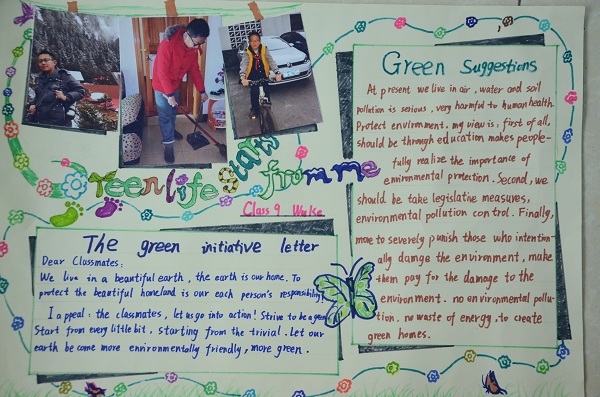 Green life starts from me
Class 9 Wu Ke
The green initiative letter
Dear Classmates:
We live in a beautiful earth, the earth is our home. To
protect the beautiful homeland is our each person's responsibility!
I appeal: the classmates, let us go into action! Strive to be a green
Start from every little bit, starting from the trivial. Let our
earth be come more environmentally friendly, more green.
Green Suggestions
At present we live in air, water and soil
pollution is serious, very harmful to human health.
Protect environment. my view is, first of all,
should be through education makes people-
fully realize the importance of
enironmental protection. Second, we
should be take legislative measures,
environmental pollution control. Finally,
more to severely punish those who intention-
ally damge the environment, make
them pay for the damage to the
environment. no environmental pollu-
tion. no waste of energy. to create
green homes.